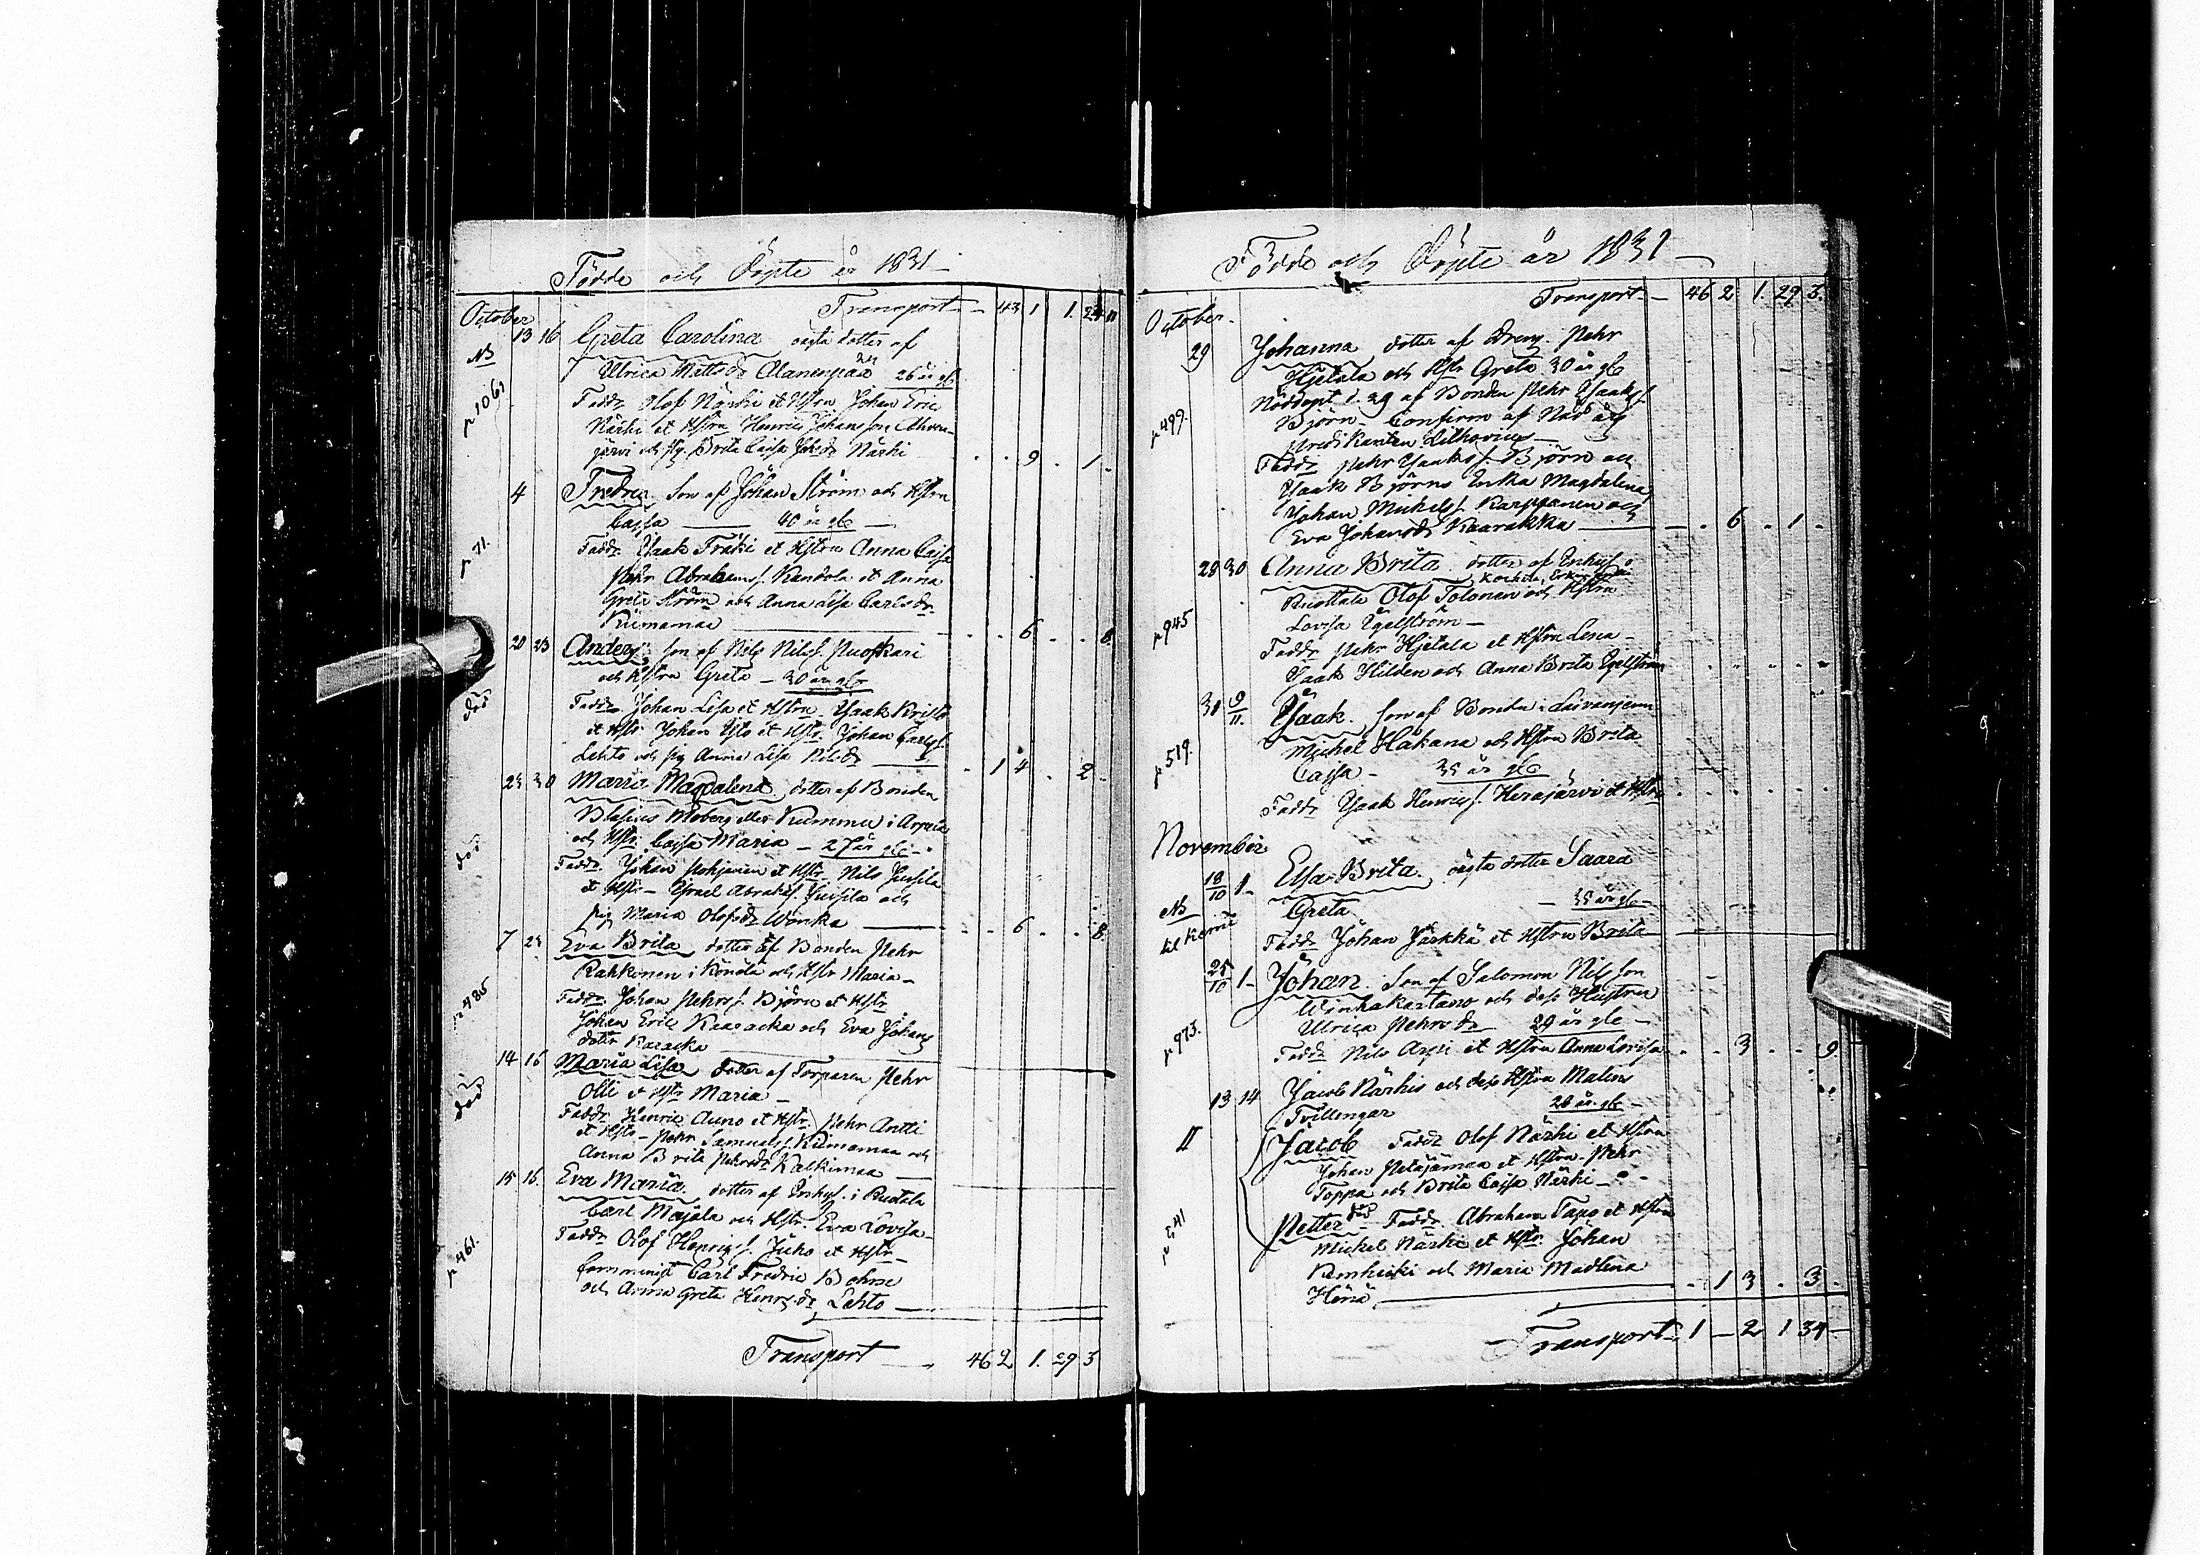 Födde och Döpte år 1831
Transport 43 1 1. 24 11
October
13 16 Greta Carolina oägta dotter af
NB Ulrica Mattsdr Alanenpää 26 år gl
p 1061 Faddr Olof Närhi et Hstru Johan Eric
Närhi et Hstru Henric Johansson Ahven-
järvi och pig. Brita Cajsa Johsdr Närhi 9 1
4 Fredric son af Johan Ström och Hstru
Cajsa 40 år gl
p 71. Faddr Isaak Fräki et Hstru Anna Cajsa
Pehr Abrahams. Kandola et Anna
Greta Ström och Anna Lisa Carlsdr
Kiimamaa 6 8
20 23 Anders son af Nils Nils.
och Hstru Greta 30 år gl
död Faddr Johan Lisa et Hstru Isaak Kristo
et Hstr Johan et Hstr Johan Carls.
Lehto och pig Anna Lisa Nilsdr 1 4 2
23 30 Maria Magdalena dotter af Bonden
Blasius Moberg eller Kumma i Arpela
död och Hstr Cajsa Maria 27 år gl
Faddr Johan Pohjanen et Hstr Nils Jussila
et Hstr Israel Abrahs. Jussila och
pig Maria Olofsdr 6 8
7 23 Eva Brita dotter af Bonden Pehr
Rahkonen i och Hstr Maria
p 485 Faddr Johan Pehrs. Björn et Hstr
Johan Eric Kaaracka och Eva Johans
dotter Karacka
14 16 Maria Lisa dotter af Torparen Pehr
Olli et Hstr Maria
död Faddr Henric Auno et Hstr Pehr Antti
et Hstr Pehr Samuels. Kiimamaa och
Anna Brita Pehrsdr Kalkimaa
15 16 Eva Maria dotter af Inhys. i Ruotala
Carl Majala och Hstr. Eva Lovisa
p 461. Faddr Olof Henrics. Juho et Hstr
Carl Fredric Bohm
och Anna Greta Henrsdr Lehto
Transport 46 2 1. 29 3
Födde och Döpte år 1831
Transport 46 2 1. 29 3.
October
29 Johanna dotter af Dreng. Pehr
Hjetala och Hstr Greta 30 år gl
p 499. Nöddöpt d. 29 af Bonden Pehr Isaaks.
Björn Confirm af Nåd års
Predikanten Lithovius
Faddr Pehr Isaaks. Björn och
Isaak Björns Enka Magdalena
Johan Michels. Karppanen och
Eva Johansdr Kaarakka 6 1
28 30 Anna Brita dotter af Inhys. i
Ruottala Olof Tolonen och Hstru
p 945 Lovisa Egelström
Faddr Pehr Hjetala et Hstru Lena
Isaak Hilden och Anna Brita Egelström
31 9/11. Isaak son af Bonden i Laivaniemi
Michel Hakana och Hstru Brita
p 519. Cajsa 35 år gl
Faddr Isaak Henrics. Herajärvi et Hstru
November
18/10 1 Elsa Brita oägta dotter Saara
NB Greta 35 år gl
til Kemi Faddr Johan Jarkkä et Hstru Brita
25/10 1 Johan son af Salomon Nilsson
Winhakartano och dess Hustru
p 973. Ulrica Pehrsdr 29 år gl
Faddr Nils Arpi et Hstru Anna Lovisa 3 9
13 14 Jacob Närhis och dess Hstru Malins
Tvillingar 28 år gl
II Jacob Faddr Olof Närhi et Hstru
Johan Petäjämaa et Hstru Pehr
Toppa och Brita Cajsa Närhi
p 541 Petter död Faddr Abraham Tapio et Hstru
Michel Närhi et Hstr Johan
och Maria Madlena
1 3 3
Transport 1 2 1 34